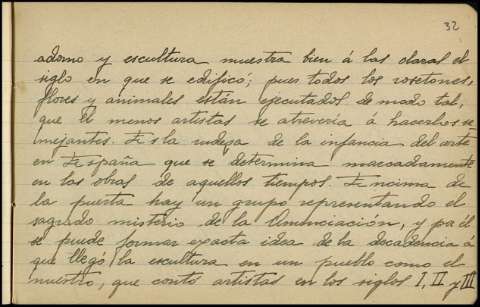 32
adorno y escultura muestra bien á las claras el
siglo en que se edificó; pues todos los rosetones,
flores y animales están ejecutados de modo tal,
que el menos artistas se atreveria á hacerlos se
mejantes. Es la rudeza de la infancia del arte
en España que se determina marcadamente
en las obras de aquellos tiempos. Encima de
la puerta hay un grupo representando el
sagrado misterio de la Anunciación, y por él
se puede formar exacta idea de la decadencia á
que llegó la escultura en un pueblo como el
nuestro, que contó artistas en los siglos I, II y III